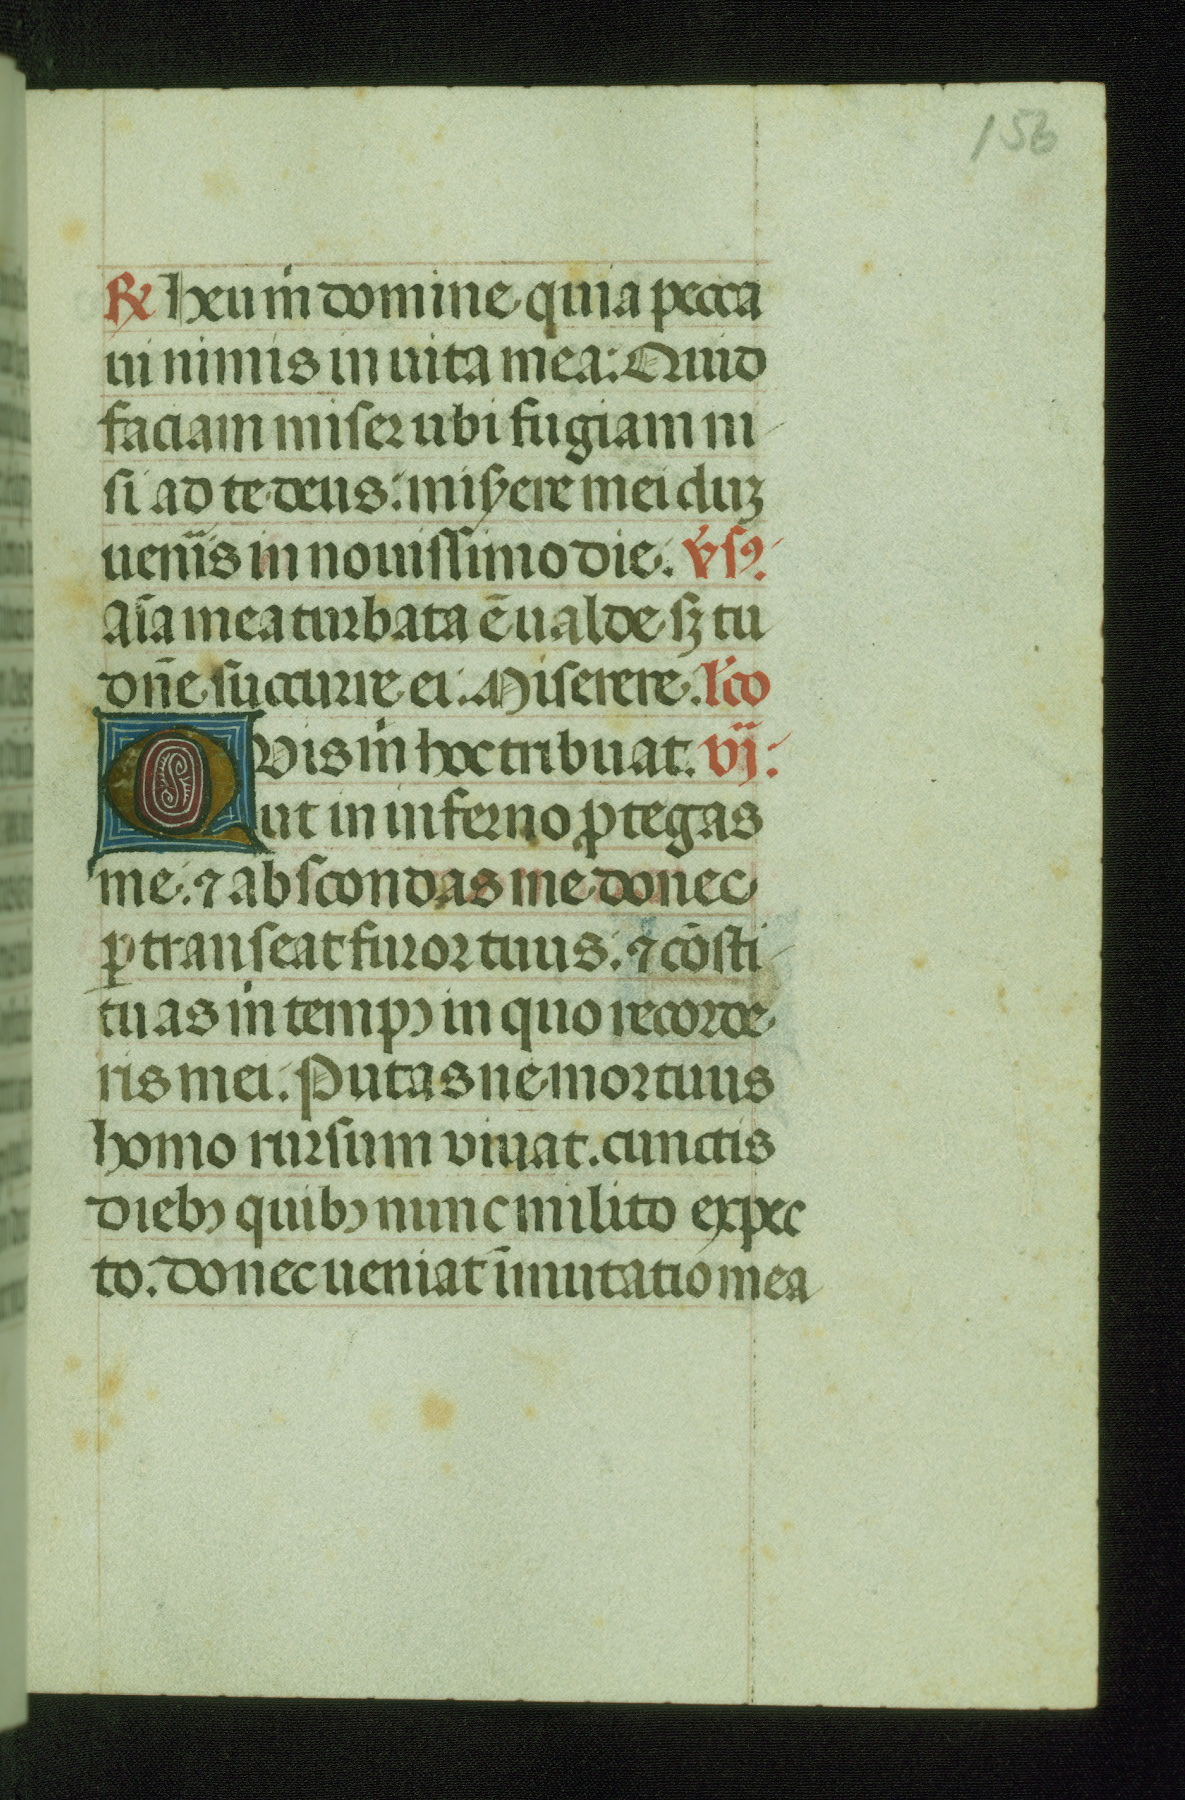 156
℟ heu m̍ domine quia pecca
ui nimis in uita mea: Quid
faciam miser ubi fugiam ni
si ad te deus: misẏere mei duꝫ
ueniĩs in nouissimo die. v̍sꝰ.
aĩa mea turbata ē ualde sꝫ tu
dñe succurre ei. Miserere. l̍co
Quis m̍ hoc tribuat. vij:
ut in inferno ꝓtegas
me. ⁊ abscondas me donec
ꝑtranseat furor tuus. ⁊ cōsti
tuas m̍ tempꝰ in quo recorde
ris mei. Putas ne mortuus
homo rursum viuat. cunctis
diebꝰ quibꝰ nunc milito expec
to. donec ueniat īmutatio mea